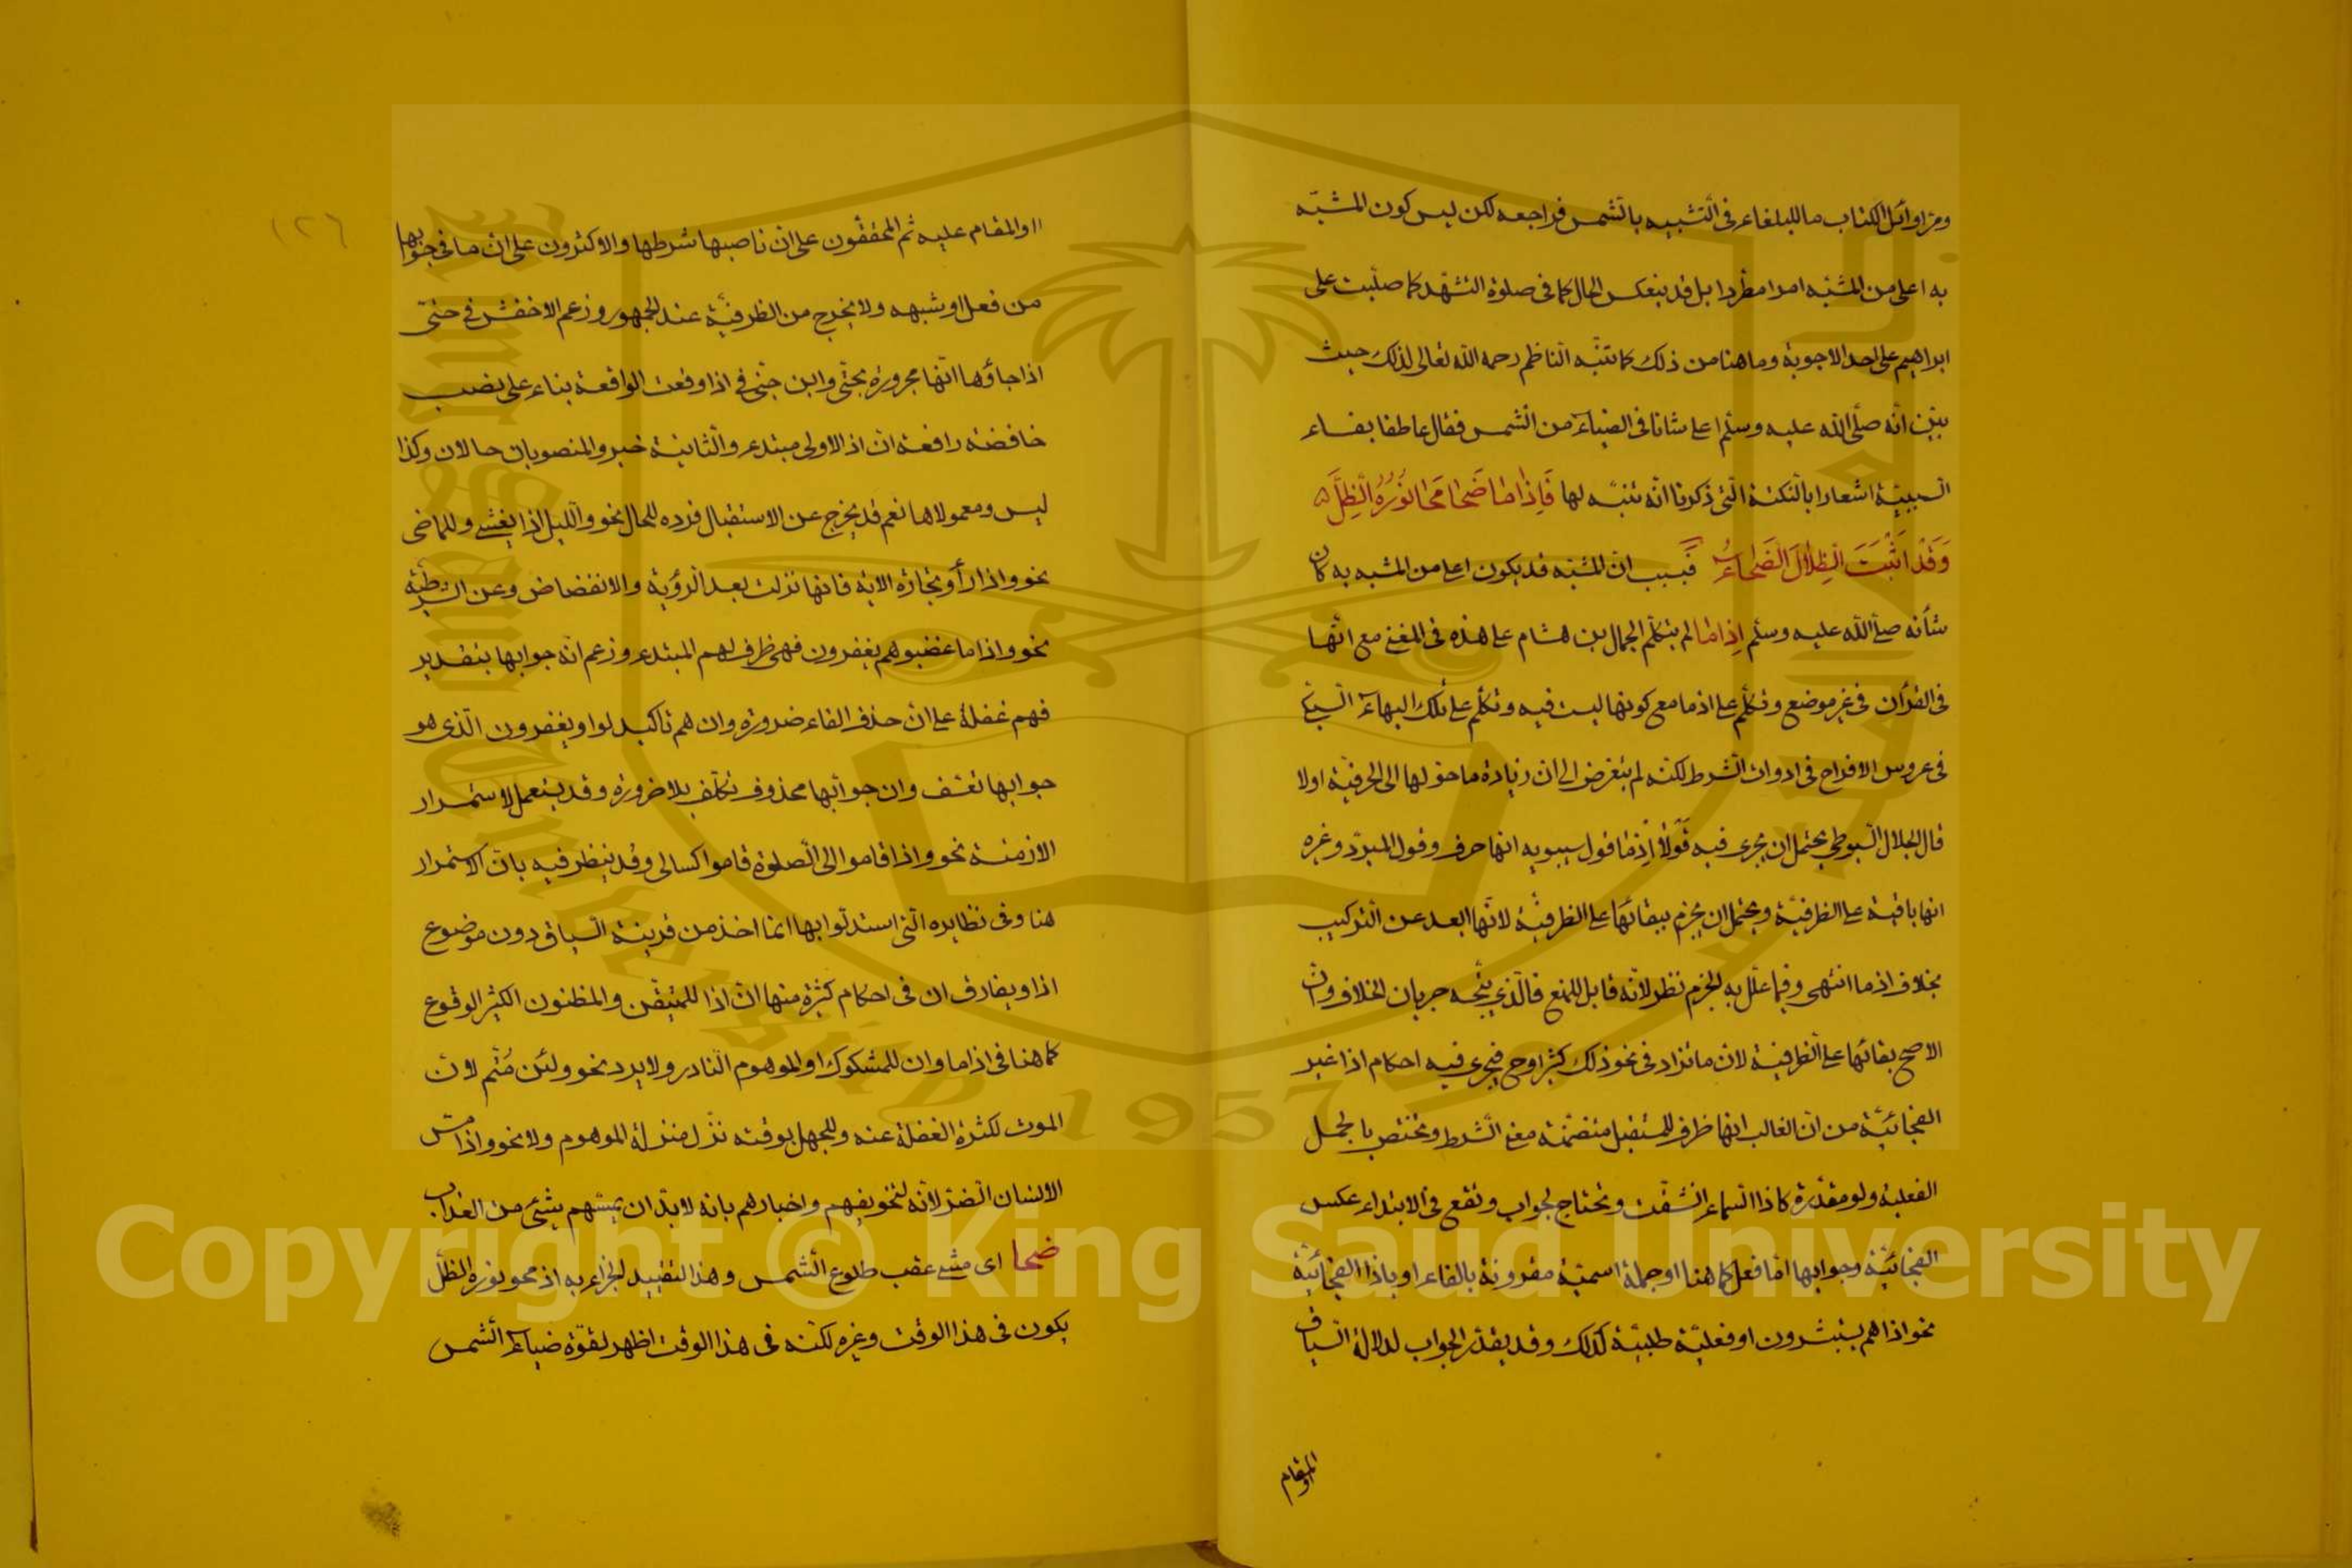 ومر اوائل الكتاب ما للبلغاء فى التشبيه بالشمس فراجعه لكن ليس كون المشبّه
به اعلى من المشبّه امرا مطّردا بل قد ينعكس الحال كما فى صلوة التشهّد كما صلّيت على
ابراهيم على احد الاجوبة وما هنا من ذلك كما تنبّه الناظم رحمه الله تعالى لذلك حيث
بيّن انّه صلّى الله عليه وسلّم اعلى شانا فى الضياء من الشمس فقال عاطفا بفاء
السببيّة اشعارا بالنكتة الّتى ذكرنا انّه تنبّه لها فَإِذَا مَا ضَحَا مَحَا نُورُهُ الظِّلَّ
وَقَدْ اَثْبَتَ الظِّلَالَ الضَّحَاءُ فبسبب انّ المشبّه قد يكون اعلى من المشبه به كان
شأنه صلّى الله عليه وسلّم اِذَا مَا لم يتكلّم الجمال بن هشام على هذه فى المغنى مع انّها
فى القرأن فى غير موضع وتكلّم على اذما مع كونها ليست فيه وتكلّم على تلك البهاء السبكى
فى عروس الافراح فى ادوات الشرط لكنّه لم يتعرض الى ان زيادة ما حوّلها الى الحرفيّة اولا
قال الجلال السيوطى يحتمل ان يجرى فيه قولا اذما قول سيبويه انها حرف وقول المبرّد وغيره
انها باقية على الظرفيّة ويحتمل ان يجزم ببقائها على الظرفيّة لانّها ابعد عن التركيب
بخلاف اذما انتهى وفيما علّل به الجزم نظر لانّه قابل للمنع فالّذى يتّجه جريان الخلاف وانّ
الاصح بقائها على الظرفية لان ما تزاد فى نحو ذلك كثيرا وح فيجرى فيه احكام اذا غير
الفجائيّة من انّ الغالب انها ظرف للمستقبل متضمّنة معنى الشرط وتختص بالجمل
الفعليّة ولو مقدّرة كاذا السّماء انشقّت وتحتاج لجواب وتقع فى الابتداء عكس
الفجائيّة وجوابها امّا فعل كما هنا او جملة اسميّة مقرونة بالفاء او باذا الفجائيّة
نحو اذا هم يستبشرون او فعليّة طلبيّة كذلك وقد يقدّر الجواب لدلالة السّياق
او المقام
١٢٦
او المقام عليه ثم المحقّقون على انّ ناصبها شرطها والاكثرون على انّ ما فى جوابها
من فعل او شبهه ولا يخرج من الظرفيّة عند الجمهور وزعم الاخفش فى حتى
اذا جاؤها انّها مجرورة بحتّى وابن جنى فى اذا وقعت الواقعة بناء على نصب
خافضة رافعة انّ اذ الاولى مبتدء والثانية خبر والمنصوبان حالان وكذا
ليس ومعمولاها نعم قد يخرج عن الاستقبال فترد للحال نحو والليل اذا يغشى وللماضى
نحو واذا رأو تجارة الاية فانها نزلت بعد الرؤية والانفضاض وعن الشرطيّة
نحو واذا ما غضبوا هم يغفرون فهى ظرف لهم المبتدء وزعم انّه جوابها بتقدير
فهم غفلة على انّ حذف الفاء ضرورة وان هم تاكيد لواو يغفرون الّذى هو
جوابها تعسّف وان جوابها محذوف تكلّف بلا ضرورة وقد يستعمل لاستمرار
الازمنة نحو واذا قاموا الى الصلوة قاموا كسالى وقد ينظر فيه بانّ الاستمرار
هنا وفى نظايره الّتى استدلّوا بها انّما اخذ من قرينة السياق دون موضوع
اذا ويفارق ان فى احكام كثيرة منها انّ اذا للمتيقّن والمظنون الكثير الوقوع
كما هنا فى اذا ما وان للمشكوك او الموهوم النّادر ولا يرد نحو ولئن مُتّم لانّ
الموت لكثرة الغفلة عنه وللجهل بوقته نزّل منزلة الموهوم ولا نحو واذا مسّ
الانسان الضرّ لانّه لتخويفهم واخبارهم بانه لا بدّ ان يمسّهم بشئ من العذاب
ضحا اى مشى عقب طلوع الشمس وهذا التقييد للجزاء به اذ محو نوره الظلّ
يكون فى هذا الوقت وغيره لكنّه فى هذا الوقت اظهر لقوّة ضياء الشمس
Copyright © King Saud University
1957